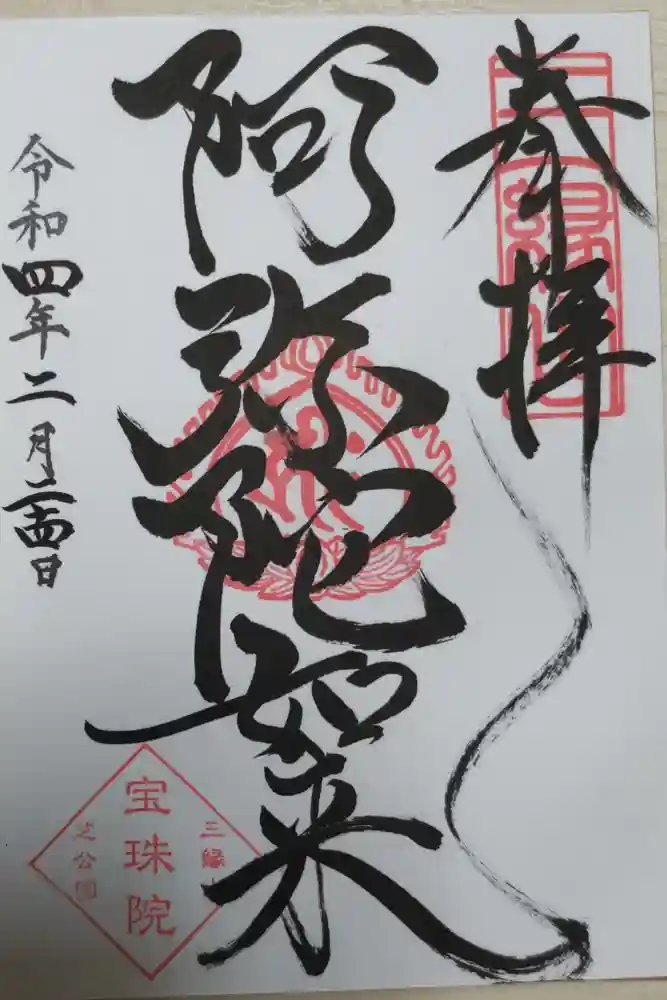 奉拝
阿弥陀如来
令和四年二月二十四日
三縁山
宝珠院
芝公園